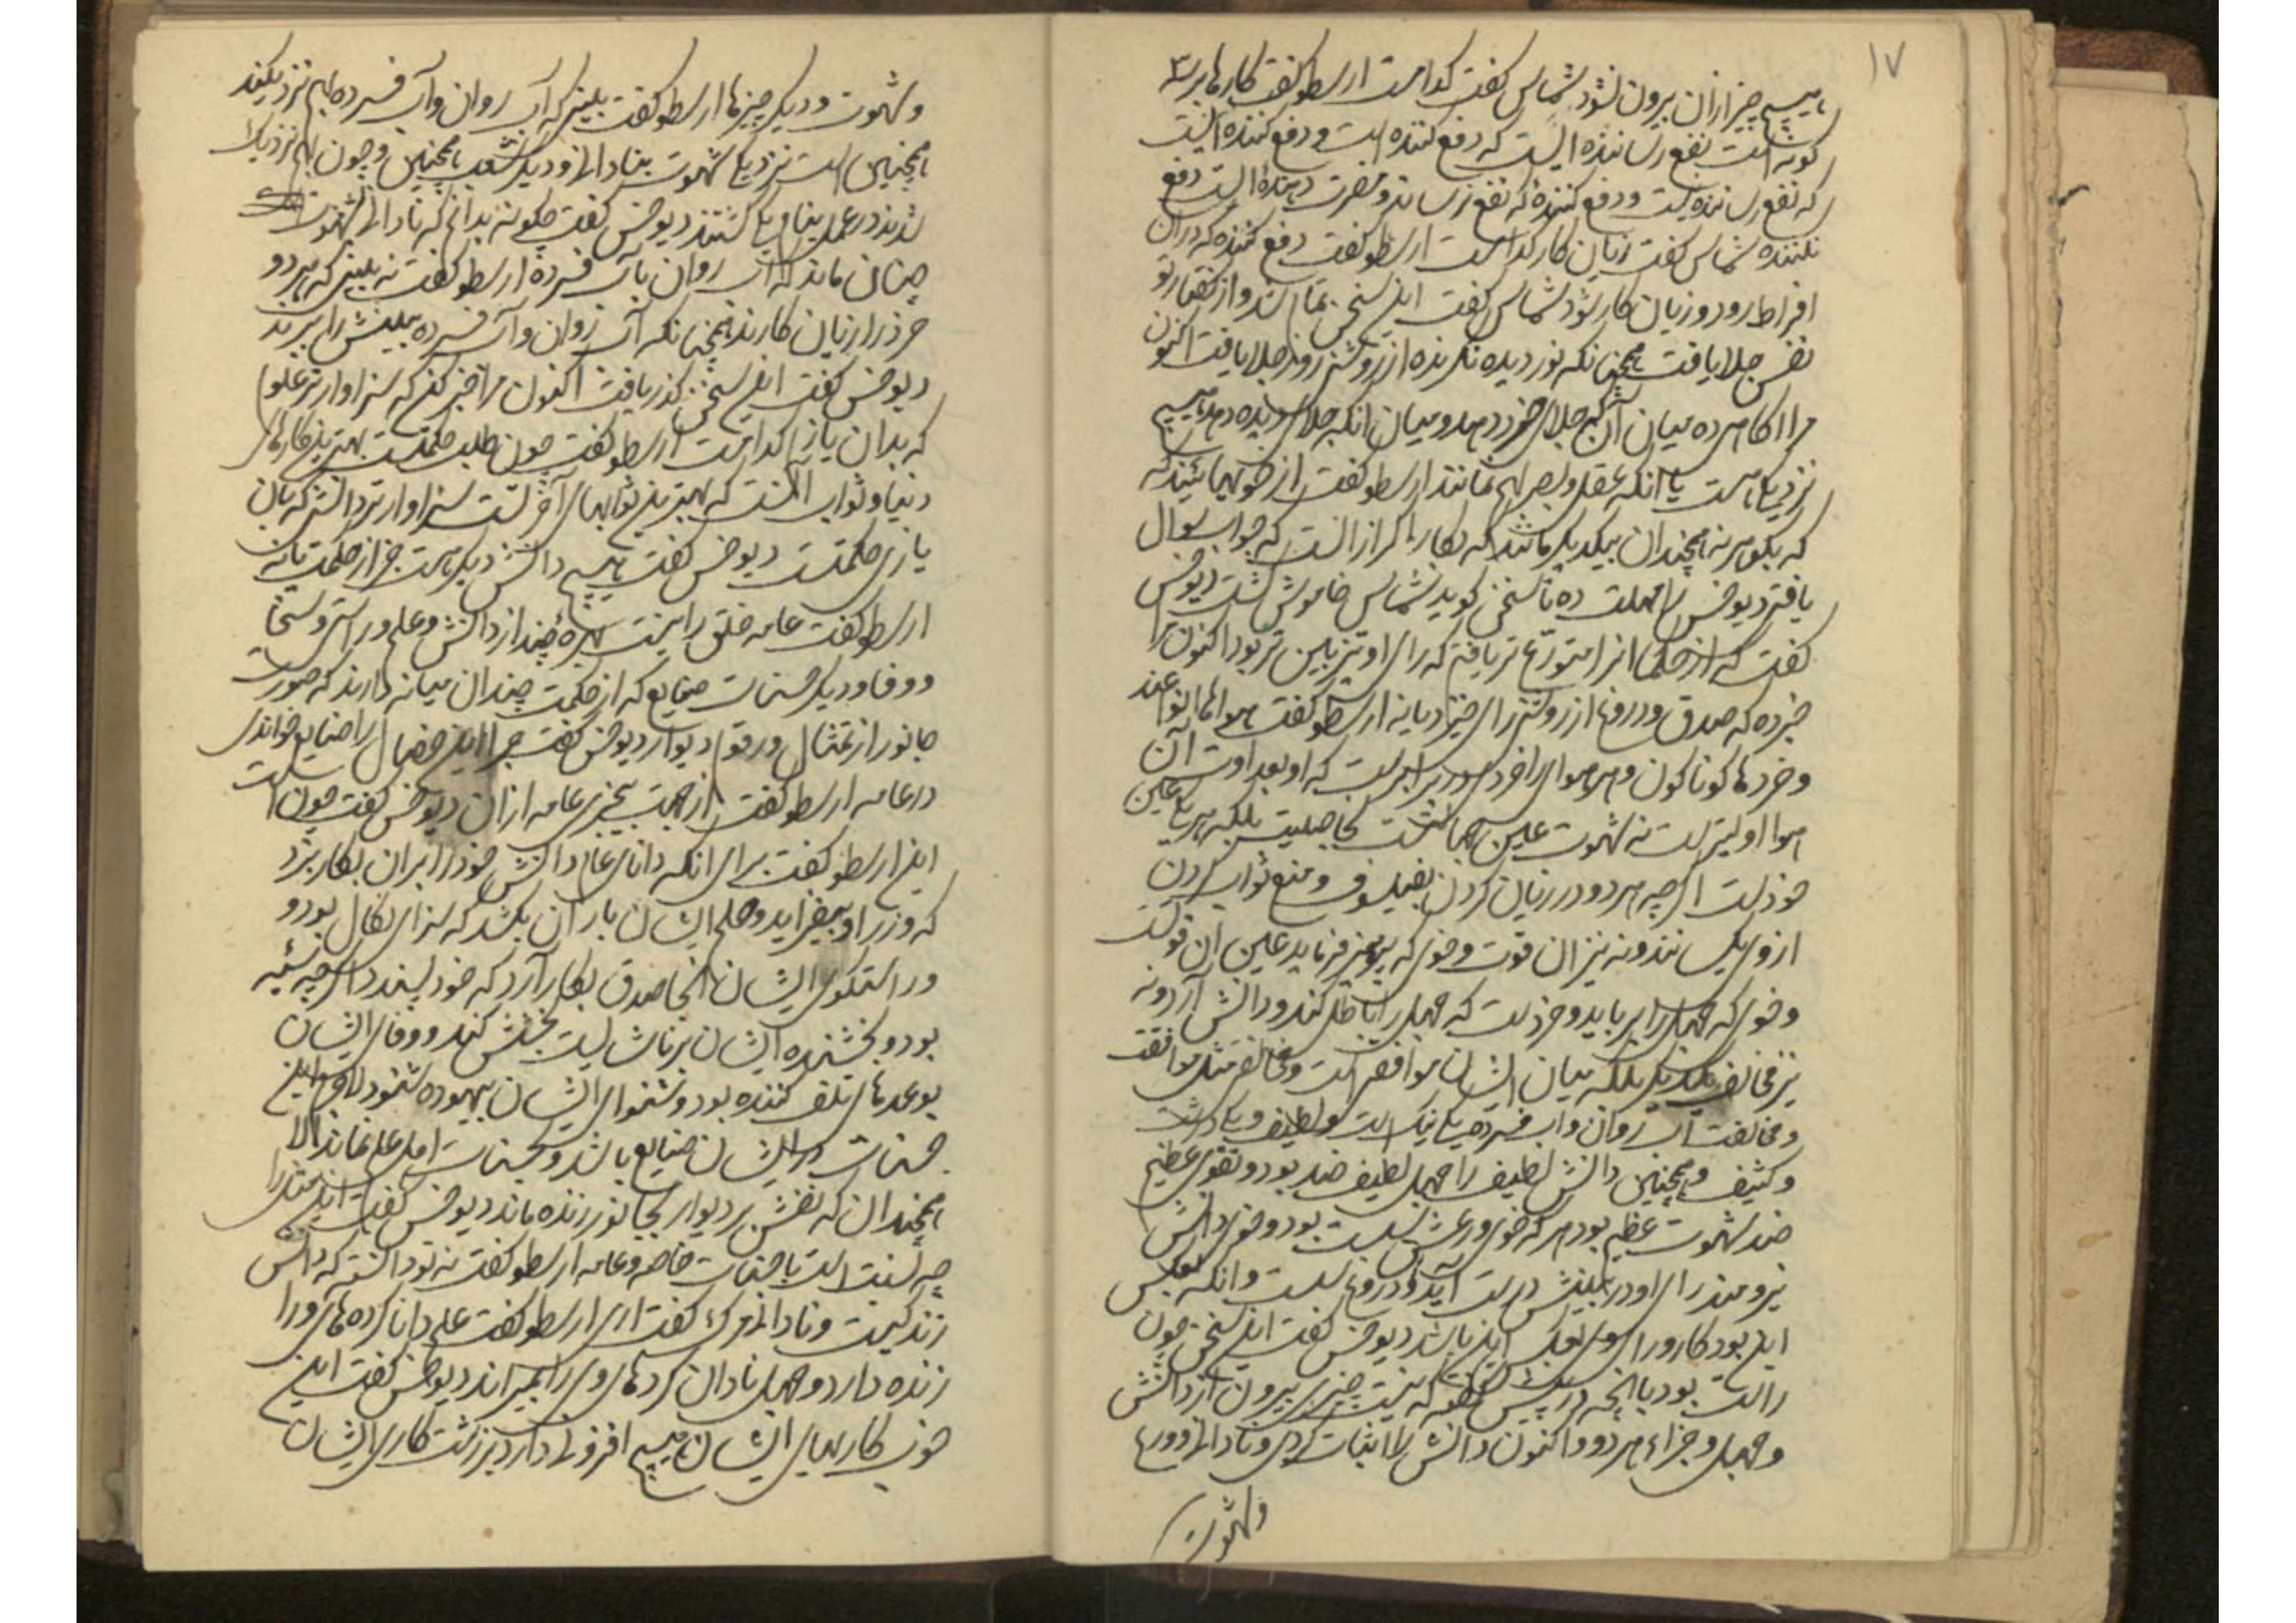 ۱۷
هیچ چیز از آن بیرون نشود شماس گفت کدامست ارسطو گفت کارها بر سه
گونه است نفع رساننده ایست که دفع کننده است و دفع کننده ایست
که نفع رساننده نیست و دفع کننده که نفع نرساند و مضرت دهنده است دفع
نکننده شماس گفت زیان کار کدامست ارسطو گفت دفع کننده که در آن
افراط رود و زیان کار شود شماس گفت این سخن تمام شد و از گفتار تو
نفس جلا یافت همچنانکه نور دیده نگرنده از روشنی روز جلا یافت اکنون
مرا آگاهی ده میان آن که جلای خرد دهد و میان آنکه جلای دیده دهد هیچ
نزدیکی هست یا آنکه عقل و بصر بهم مانند ارسطو گفت از
که بگوهر نه همچندان بیکدیگر مانند که بکار اگر از آنست که جواب سوال
یافتی دیوخس را مهلت ده تا سخن گوید شماس خاموش گشت دیوخس
گفت که از حکما آنرا متورع تر یافتم که رای او تیزبین تر بود اکنون مرا
خبر ده که صدق و دروغ از روشنی رای خیزد یا نه ارسطو گفت هوا
و خردها گوناگون و هر هوای را خردی در برابرست که او بعداوت آن
هوا اولیترست نه شهوت عین
خودست اگرچه هر دو در زیان کردن بفیلسوف و منع ثواب کردن
از وی یکسانند و نه نیز آن قوت و خوی که پرهیز فرماید عین آن قوتست
و خوی که جهل را برباید و خردست که جهل را باطل کند و دانش آرد و نه
نیز مخالف یکدیگر بلکه میان ایشان موافقی است و مخالفی مثل موافقت
و مخالفت آب روان و آب فسرده یکی نیک است و لطیف و یکی درشت
و کثیف و همچنین دانش لطیف را جهل لطیف ضد بود و تقوی عظیم
ضد شهوت عظیم بود هر که خوی ورعش بود و خوی دانش
نیرومند رای او در بینش درست آید و دروغ نیست و آنکه بعکس
این بود کار و رای وی بعکس این باشد دیوخس گفت این سخن چون
راست بود با آنچه در پیش گفتی که نیست چیزی بیرون از دانش
و جهل و جزاء هر دو و اکنون دانش را اثبات کردی و نادانی و ورع
و شهوت
و شهوت و دیگر چیزها ارسطو گفت بینی که آب روان و آب فسرده بهم نزدیکند
همچنین است نزدیکی شهوت بنادانی و دیگر شعب همچنین و چون بهم نزدیک
شدند در عمل بنام یکی گشتند دیوخس گفت چگونه بدانم که نادانی بشهوت
چنان ماند که آب روان بآب فسرده ارسطو گفت نه بینی که هر دو
خرد را زیان کارند همچنانکه آب روان و آب فسرده بینش را ببرند
دیوخس گفت این سخن گذر یافت اکنون مرا خبر کن که سزاوارتر علوم
که بدان یازم کدامست ارسطو گفت چون طلب حکمت بهترین کارهای
دنیا و ثواب آنست که بهترین ثوابهای آخرتست سزاوارتر دانشی که بآن
یازی حکمتست دیوخس گفت هیچ دانش دیگر هست جز از حکمت یا نه
ارسطو گفت عامه خلق را نیست بهره چند از دانش و علم و راستی و سخا
و وفا و دیگر حسنات ضایع که از حکمت چندان میانه دارند که صورت
جانور از تمثال و رقوم دیوار دیوخس گفت چرا این خصال را ضایع خواندی
در عامه ارسطو گفت از جهت بیخبری عامه از آن دیوخس گفت چون است
این ارسطو گفت برای آنکه دانای عام دانش خود را بر آن بکار برد
که وزر او بیفزاید و حلم ایشان بار آن بکشد که سزای نکال بود و
و راستگوی ایشان آنجا صدق بکار آرد که خود پسندد اگرچه
بود و بخشنده ایشان بر ناشایست بخشش کند و وفای ایشان
بوعدهای تلف کننده بود و شنوای ایشان بیهوده شنود لاجرم این
حسنات در ایشان ضایع باشد و بحسنات اهل علم نماند الا
همچندان که نقش بر دیوار بجانور زنده ماند دیوخس گفت این
چه نسبت است با حسنات خاصه و عامه ارسطو گفت نه تو دانستی که دانش
زندگیست و نادانی مرگ گفت آری ارسطو گفت علم دانا کرده‌های ورا
زنده دارد و جهل نادان کردهای وی را بمیراند دیوخس گفت این
خوب کاریهای ایشان هیچ افزونی دارد بر زشت کاری ایشان